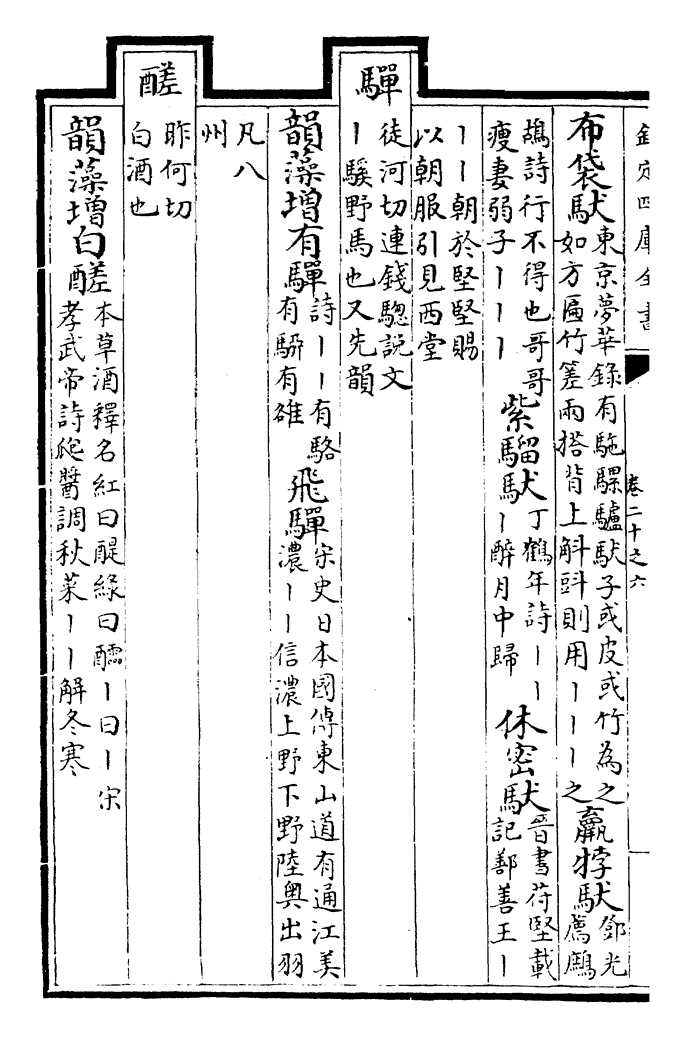 欽定四庫全書 卷二十之六
布袋馱 東京夢華錄有駞騾驢馱子或皮或竹為之如方匾竹䇟兩搭背上斛㪷則用丨丨丨之 羸牸馱 鄧光薦鷓
鴣詩行不得也哥哥瘦妻弱子丨丨丨 紫騮馱 丁鶴年詩丨丨丨醉月中歸 休密馱 晉書苻堅載記鄯善王丨
丨丨朝於堅堅賜以朝服引見西堂
驒 徒河切連錢驄説文丨騱野馬也又先韻
韻藻增有驒 詩丨丨有駱有駵有雒 飛驒 宋史日本國傳東山道有通江美濃丨丨信濃上野下野陸奥出羽
凡八州
醝 昨何切白酒也
韻藻增白醝 本草酒釋名紅曰醍綠曰醽丨曰丨宋孝武帝詩爮醬調秋菜丨丨解冬寒